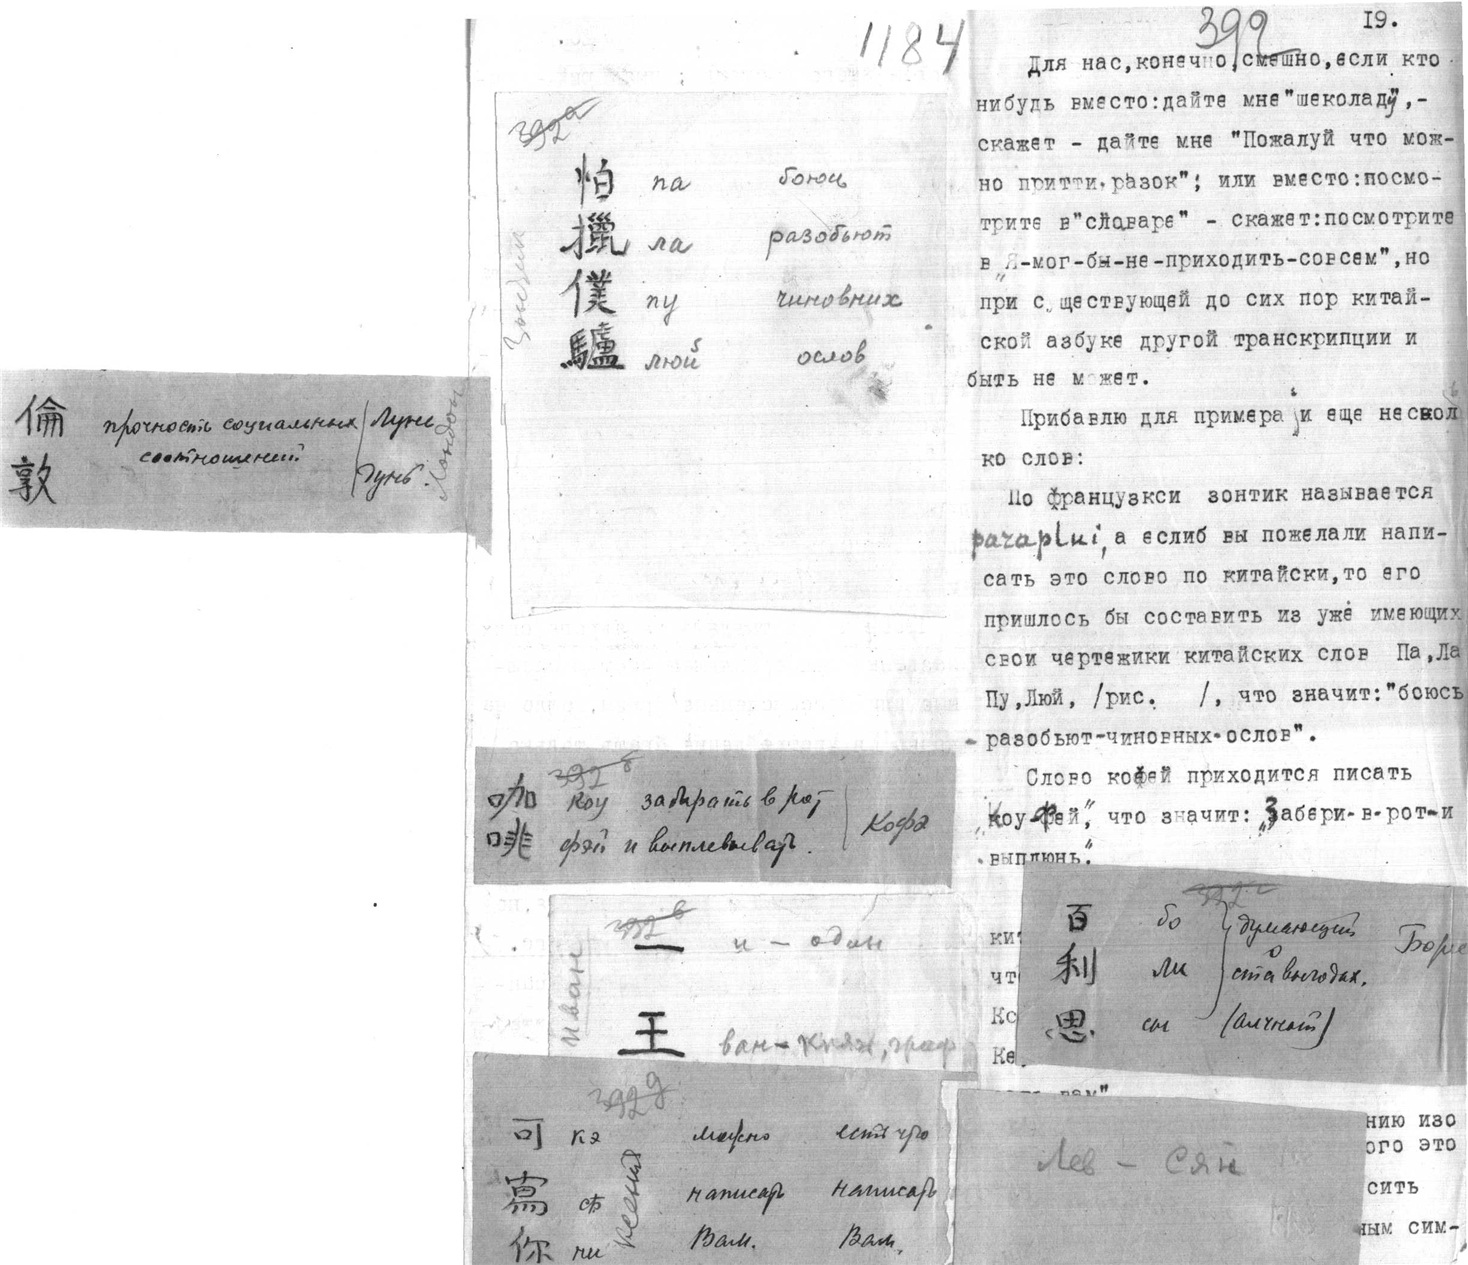 倫 прочность социальных Лунь
敦 соотношений Дунь.
Лондон
1184
392а
怕 па боюсь
擸 ла разобьют
僕 пу чиновных
驢 люй ослов
Зонтик
392б
咖 коу забирать в рот
啡 фэй и выплевывать.
Кофэ
392в
一 и – один
王 ван – князь, граф
Иван
392д
可 кэ можно есть что
寫 сѣ написать написать
你 ни Вам. Вам.
Ксения
392
I9.
Для нас,конечно,смешно,если кто
нибудь вместо:дайте мне"шеколаду",-
скажет - дайте мне "Пожалуй что мож-
но притти разок"; или вместо:посмо-
трите в"словаре" - скажет:посмотрите
в "Я-мог-бы-не-приходить-совсем",но
при существующей до сих пор китай-
ской азбуке другой транскрипции и
быть не может.
Прибавлю для примера и еще нескол
ко слов:
По французкси зонтик называется
paraplui, а еслиб вы пожелали напи-
сать это слово по китайски,то его
пришлось бы составить из уже имеющих
свои чертежики китайских слов Па,Ла
Пу,Люй, /рис. /, что значит:"боюсь
-разобьют-чиновных-ослов".
Слово кофей приходится писать
"Коу-фей", что значит: "Забери-в-рот-и
выплюнь."
392г
百 бо думающий
利 ли о ста выгодах.
思 сы (алчность)
Борис
ки
чт
Ко
Ке
вам"
нию изо
ого это
сить
ным сим-
Лев – Сян